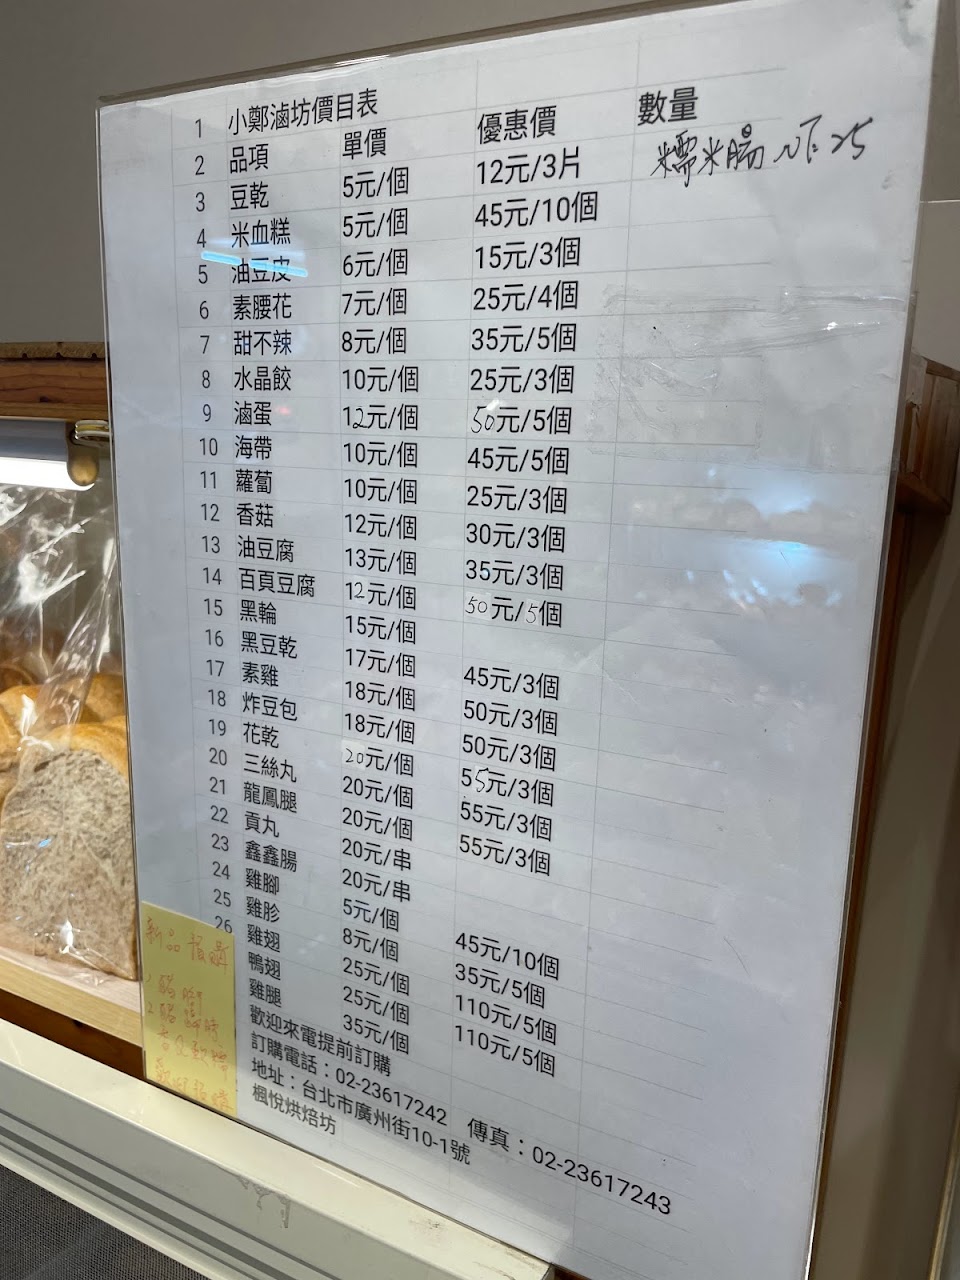 1 小鄭滷坊價目表
2 品項 單價 優惠價 數量
3 豆乾 5元/個 12元/3片
糯米腸
25
4 米血糕 5元/個 45元/10個
5 油豆皮 6元/個 15元/3個
6 素腰花 7元/個 25元/4個
7 甜不辣 8元/個 35元/5個
8 水晶餃 10元/個 25元/3個
9 滷蛋 12元/個 50元/5個
10 海帶 10元/個 45元/5個
11 蘿蔔 10元/個 25元/3個
12 香菇 12元/個 30元/3個
13 油豆腐 13元/個 35元/3個
14 百頁豆腐 12元/個 50元/5個
15 黑輪 15元/個
16 黑豆乾 17元/個 45元/3個
17 素雞 18元/個 50元/3個
18 炸豆包 18元/個 50元/3個
19 花乾 20元/個 55元/3個
20 三絲丸 20元/個 55元/3個
21 龍鳳腿 20元/個 55元/3個
22 貢丸 20元/串
23 鑫鑫腸 20元/串
24 雞腳 5元/個 45元/10個
25 雞胗 8元/個 35元/5個
26 雞翅 25元/個 110元/5個
鴨翅 25元/個 110元/5個
雞腿 35元/個
歡迎來電提前訂購
訂購電話：02-23617242 傳真：02-23617243
地址：台北市廣州街10-1號
楓悅烘焙坊
新品預購
1.豬腳
2.豬